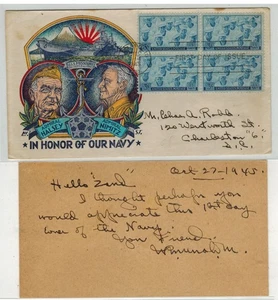 HALSEY
NIMITZ
★ IN HONOR OF OUR NAVY ★
A. Rodd
120 Wentworth St.
Charleston "6"
S.C.
Oct 27-1945
Hello "Zand"
I thought perhaps you
would appreciate this 1st day
cover of the Navy.
Your Friend,